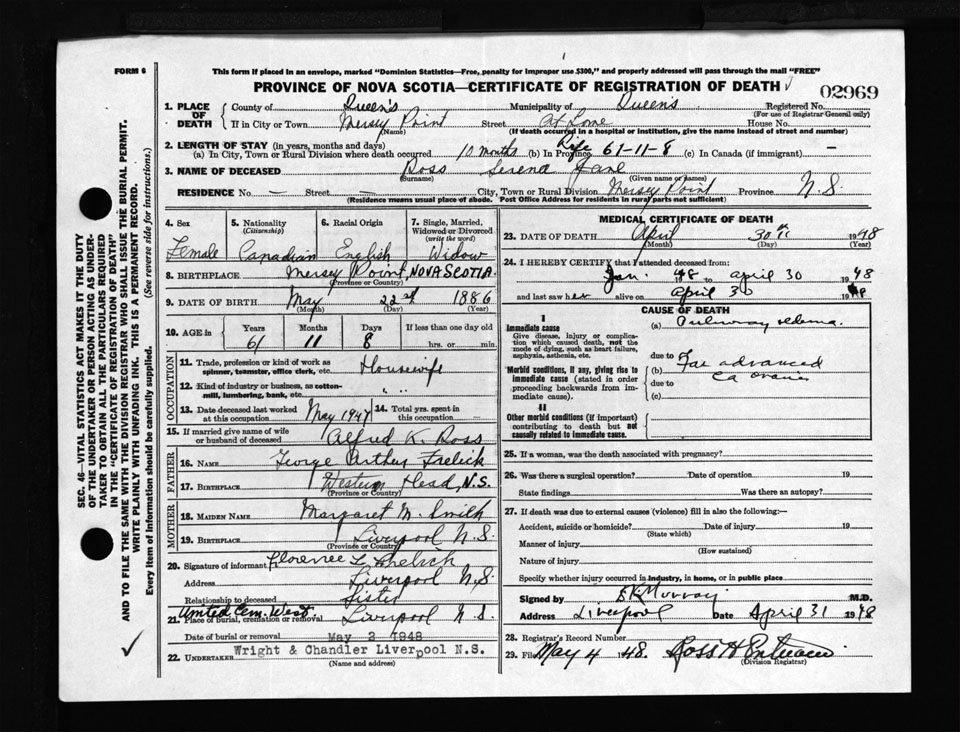 FORM 6
This form if placed in an envelope, marked "Dominion Statistics—Free, penalty for improper use $300," and properly addressed will pass through the mail "FREE"
PROVINCE OF NOVA SCOTIA—CERTIFICATE OF REGISTRATION OF DEATH
02969
1. PLACE OF DEATH
County of Queen's Municipality of Queens Registered No.
(For use of Registrar General only)
If in City or Town Mersey Point Street At Home House No.
(Name) (If death occurred in a hospital or institution, give the name instead of street and number)
2. LENGTH OF STAY (in years, months and days)
(a) In City, Town or Rural Division where death occurred 10 months (b) In Province Life 61-11-8 (c) In Canada (if immigrant) —
3. NAME OF DECEASED Ross Serena Jane
(Surname) (Given name or names)
RESIDENCE No — Street — City, Town or Rural Division Mersey Point Province N.S.
(Residence means usual place of abode. Post Office Address for residents in rural parts not sufficient)
4. Sex
Female
5. Nationality (Citizenship)
Canadian
6. Racial Origin
English
7. Single, Married, Widowed or Divorced (write the word)
Widow
8. BIRTHPLACE Mersey Point, NOVA SCOTIA.
(Province or Country)
9. DATE OF BIRTH May 22nd 1886
(Month) (Day) (Year)
10. AGE in Years Months Days If less than one day old
61 11 8 hrs. or min.
OCCUPATION
11. Trade, profession or kind of work as spinner, teamster, office clerk, etc. Housewife
12. Kind of industry or business, as cotton-mill, lumbering, bank, etc. " "
13. Date deceased last worked at this occupation May 1947
14. Total yrs. spent in this occupation —
15. If married give name of wife or husband of deceased Alfred K. Ross
FATHER
16. NAME George Arthur Frelick
17. BIRTHPLACE Western Head, N.S.
(Province or Country)
MOTHER
18. MAIDEN NAME Margaret M. Smith
19. BIRTHPLACE Liverpool N.S.
(Province or Country)
20. Signature of informant Florence L Frelick
Address Liverpool N.S.
Relationship to deceased Sister
United Cem. West
21. Place of burial, cremation or removal Liverpool N.S.
Date of burial or removal May 2 1948
22. UNDERTAKER Wright & Chandler Liverpool N.S.
(Name and address)
MEDICAL CERTIFICATE OF DEATH
23. DATE OF DEATH April 30th 1948
(Month) (Day) (Year)
24. I HEREBY CERTIFY that I attended deceased from:
Jan. 48 to April 30 1948
and last saw her alive on April 30 19
CAUSE OF DEATH
I
Immediate cause
Give disease, injury or complication which caused death, not the mode of dying, such as heart failure, asphyxia, asthenia, etc.
(a)
due to
Morbid conditions, if any, giving rise to immediate cause (stated in order proceeding backwards from immediate cause).
(b) Far advanced
due to Ca ovaries
(c)
II
Other morbid conditions (if important) contributing to death but not causally related to immediate cause.
25. If a woman, was the death associated with pregnancy?
26. Was there a surgical operation? Date of operation 19
State findings Was there an autopsy?
27. If death was due to external causes (violence) fill in also the following:—
Accident, suicide or homicide? Date of injury 19
(State which)
Manner of injury
(How sustained)
Nature of injury
Specify whether injury occurred in industry, in home, or in public place
Signed by E.K. Murray M.D.
Address Liverpool Date April 31 1948
28. Registrar's Record Number
29. Filed May 4 1948. Ross H
(Division Registrar)
SEC. 46—VITAL STATISTICS ACT MAKES IT THE DUTY
OF THE UNDERTAKER OR PERSON ACTING AS UNDER-
TAKER TO OBTAIN ALL THE PARTICULARS REQUIRED
IN THE "CERTIFICATE OF REGISTRATION OF DEATH"
AND TO FILE THE SAME WITH THE DIVISION REGISTRAR WHO SHALL ISSUE THE BURIAL PERMIT.
WRITE PLAINLY WITH UNFADING INK. THIS IS A PERMANENT RECORD.
Every item of information should be carefully supplied. (See reverse side for instructions.)